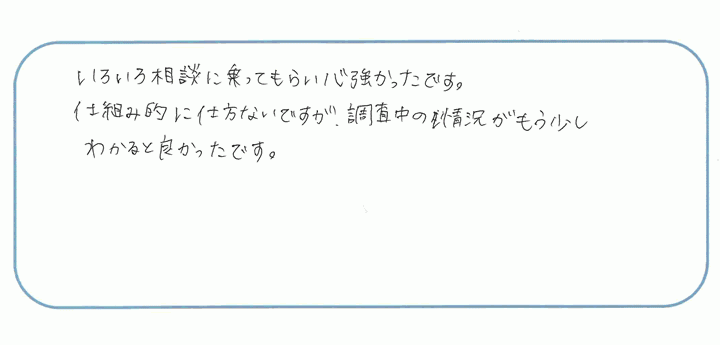 いろいろ相談に乗ってもらい心強かったです。
仕組み的に仕方ないですが、調査中の情況がもう少し
わかると良かったです。